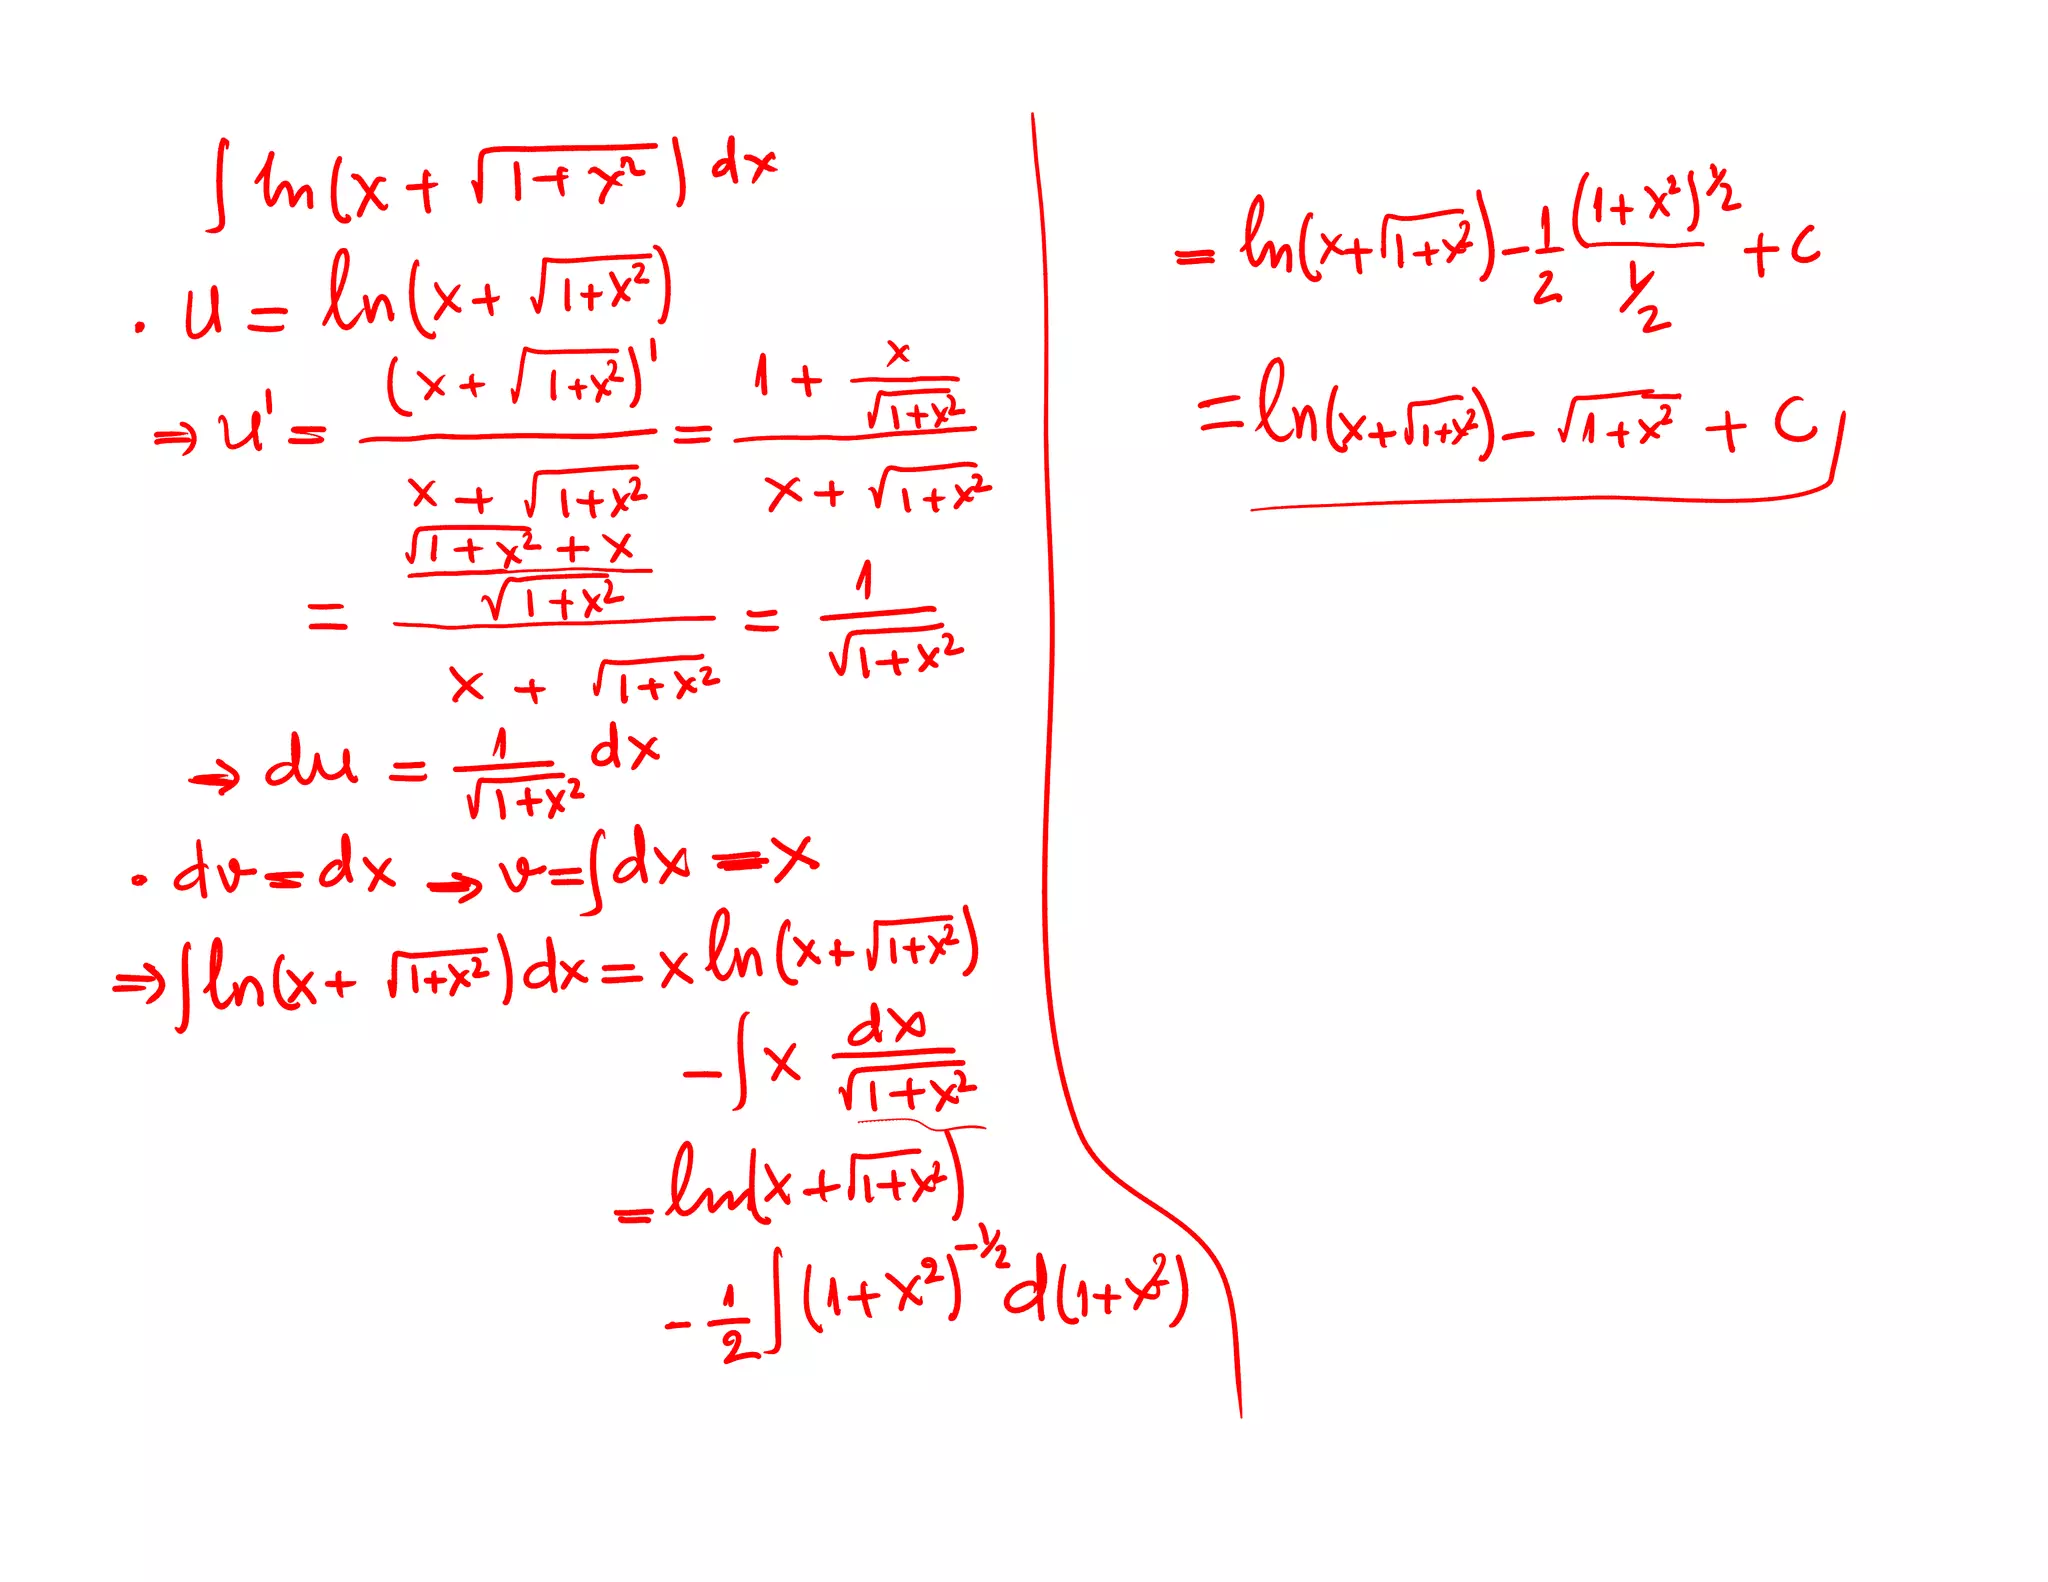 ∫ ln(x + √(1+x²)) dx
• u = ln(x + √(1+x²))
⇒ u' = (x + √(1+x²))' / (x + √(1+x²)) = (1 + x/√(1+x²)) / (x + √(1+x²))
= ((√(1+x²) + x)/√(1+x²)) / (x + √(1+x²)) = 1/√(1+x²)
→ du = 1/√(1+x²) dx
• dv = dx → v = ∫dx = x
⇒ ∫ ln(x + √(1+x²)) dx = x ln(x + √(1+x²))
- ∫ x dx/√(1+x²)
= ln(x + √(1+x²))
- 1/2 ∫ (1+x²)^(-1/2) d(1+x²)
= ln(x + √(1+x²)) - 1/2 (1+x²)^(1/2) / (1/2) + C
= ln(x + √(1+x²)) - √(1+x²) + C